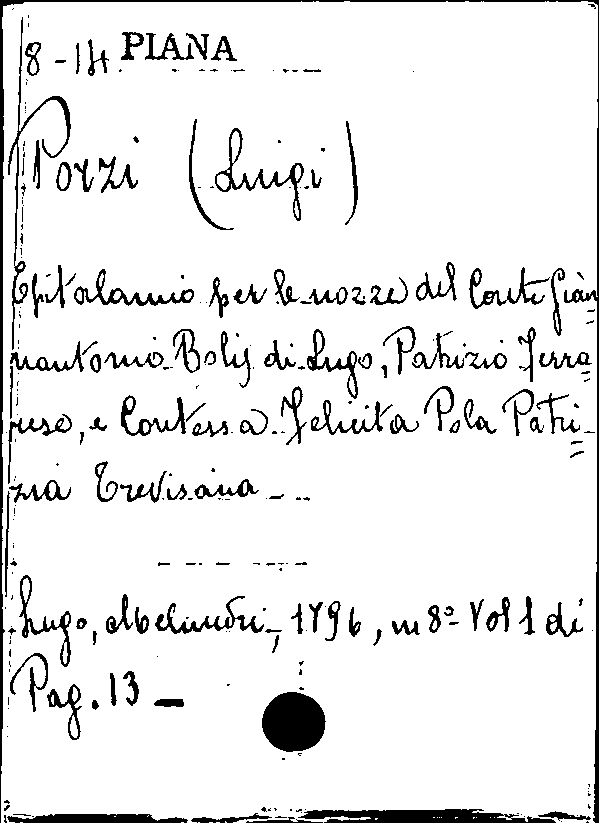 8-14 PIANA
Porzi (Luigi)
Epitalamio per le nozze del Conte Gian
nantonio Bolis di Lugo, Patrizio Ferra=
rese, e Contessa Felicita Pola Patri=
zia Trevisana _ _
Lugo, Melandri, 1796, in 8º Vol 1 di
Pag. 13 _